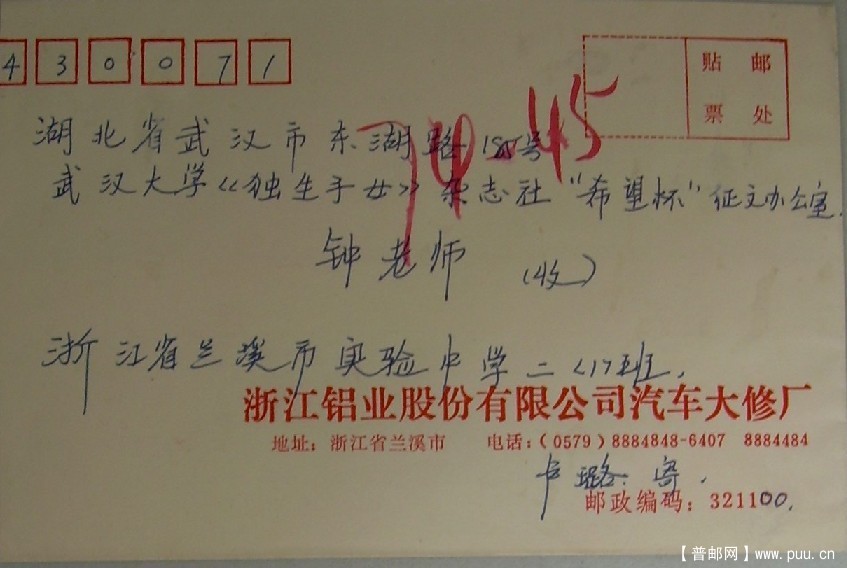 430071
贴 邮
票 处
湖北省武汉市东湖路185号
武汉大学《独生子女》杂志社"希望杯"征文办公室.
74-45
钟老师 (收)
浙江省兰溪市实验中学二(1)班.
浙江铝业股份有限公司汽车大修厂
地址：浙江省兰溪市 电话：(0579)8884848-6407 8884484
卢璐 寄.
邮政编码：321100.
【普邮网】www.puu.cn